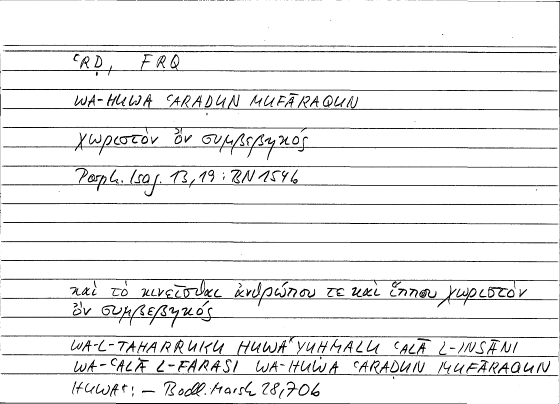 ʿRḌ, FRQ
WA-HUWA ʿARAḌUN MUFĀRAQUN
χωριστὸν ὂν συμβεβηκός
Porph. Isag. 13,19 : BN 1546
καὶ τὸ κινεῖσθαι ἀνθρώπου τε καὶ ἵππου χωριστὸν
ὂν συμβεβηκός
WA-L-TAḤARRUKU HUWAᵃ YUḤMALU ʿALĀ L-INSĀNI
WA-ʿALĀ L-FARASI WA-HUWA ʿARAḌUN MUFĀRAQUN
HUWAᵃ: – Bodl. Marsh 28,70b